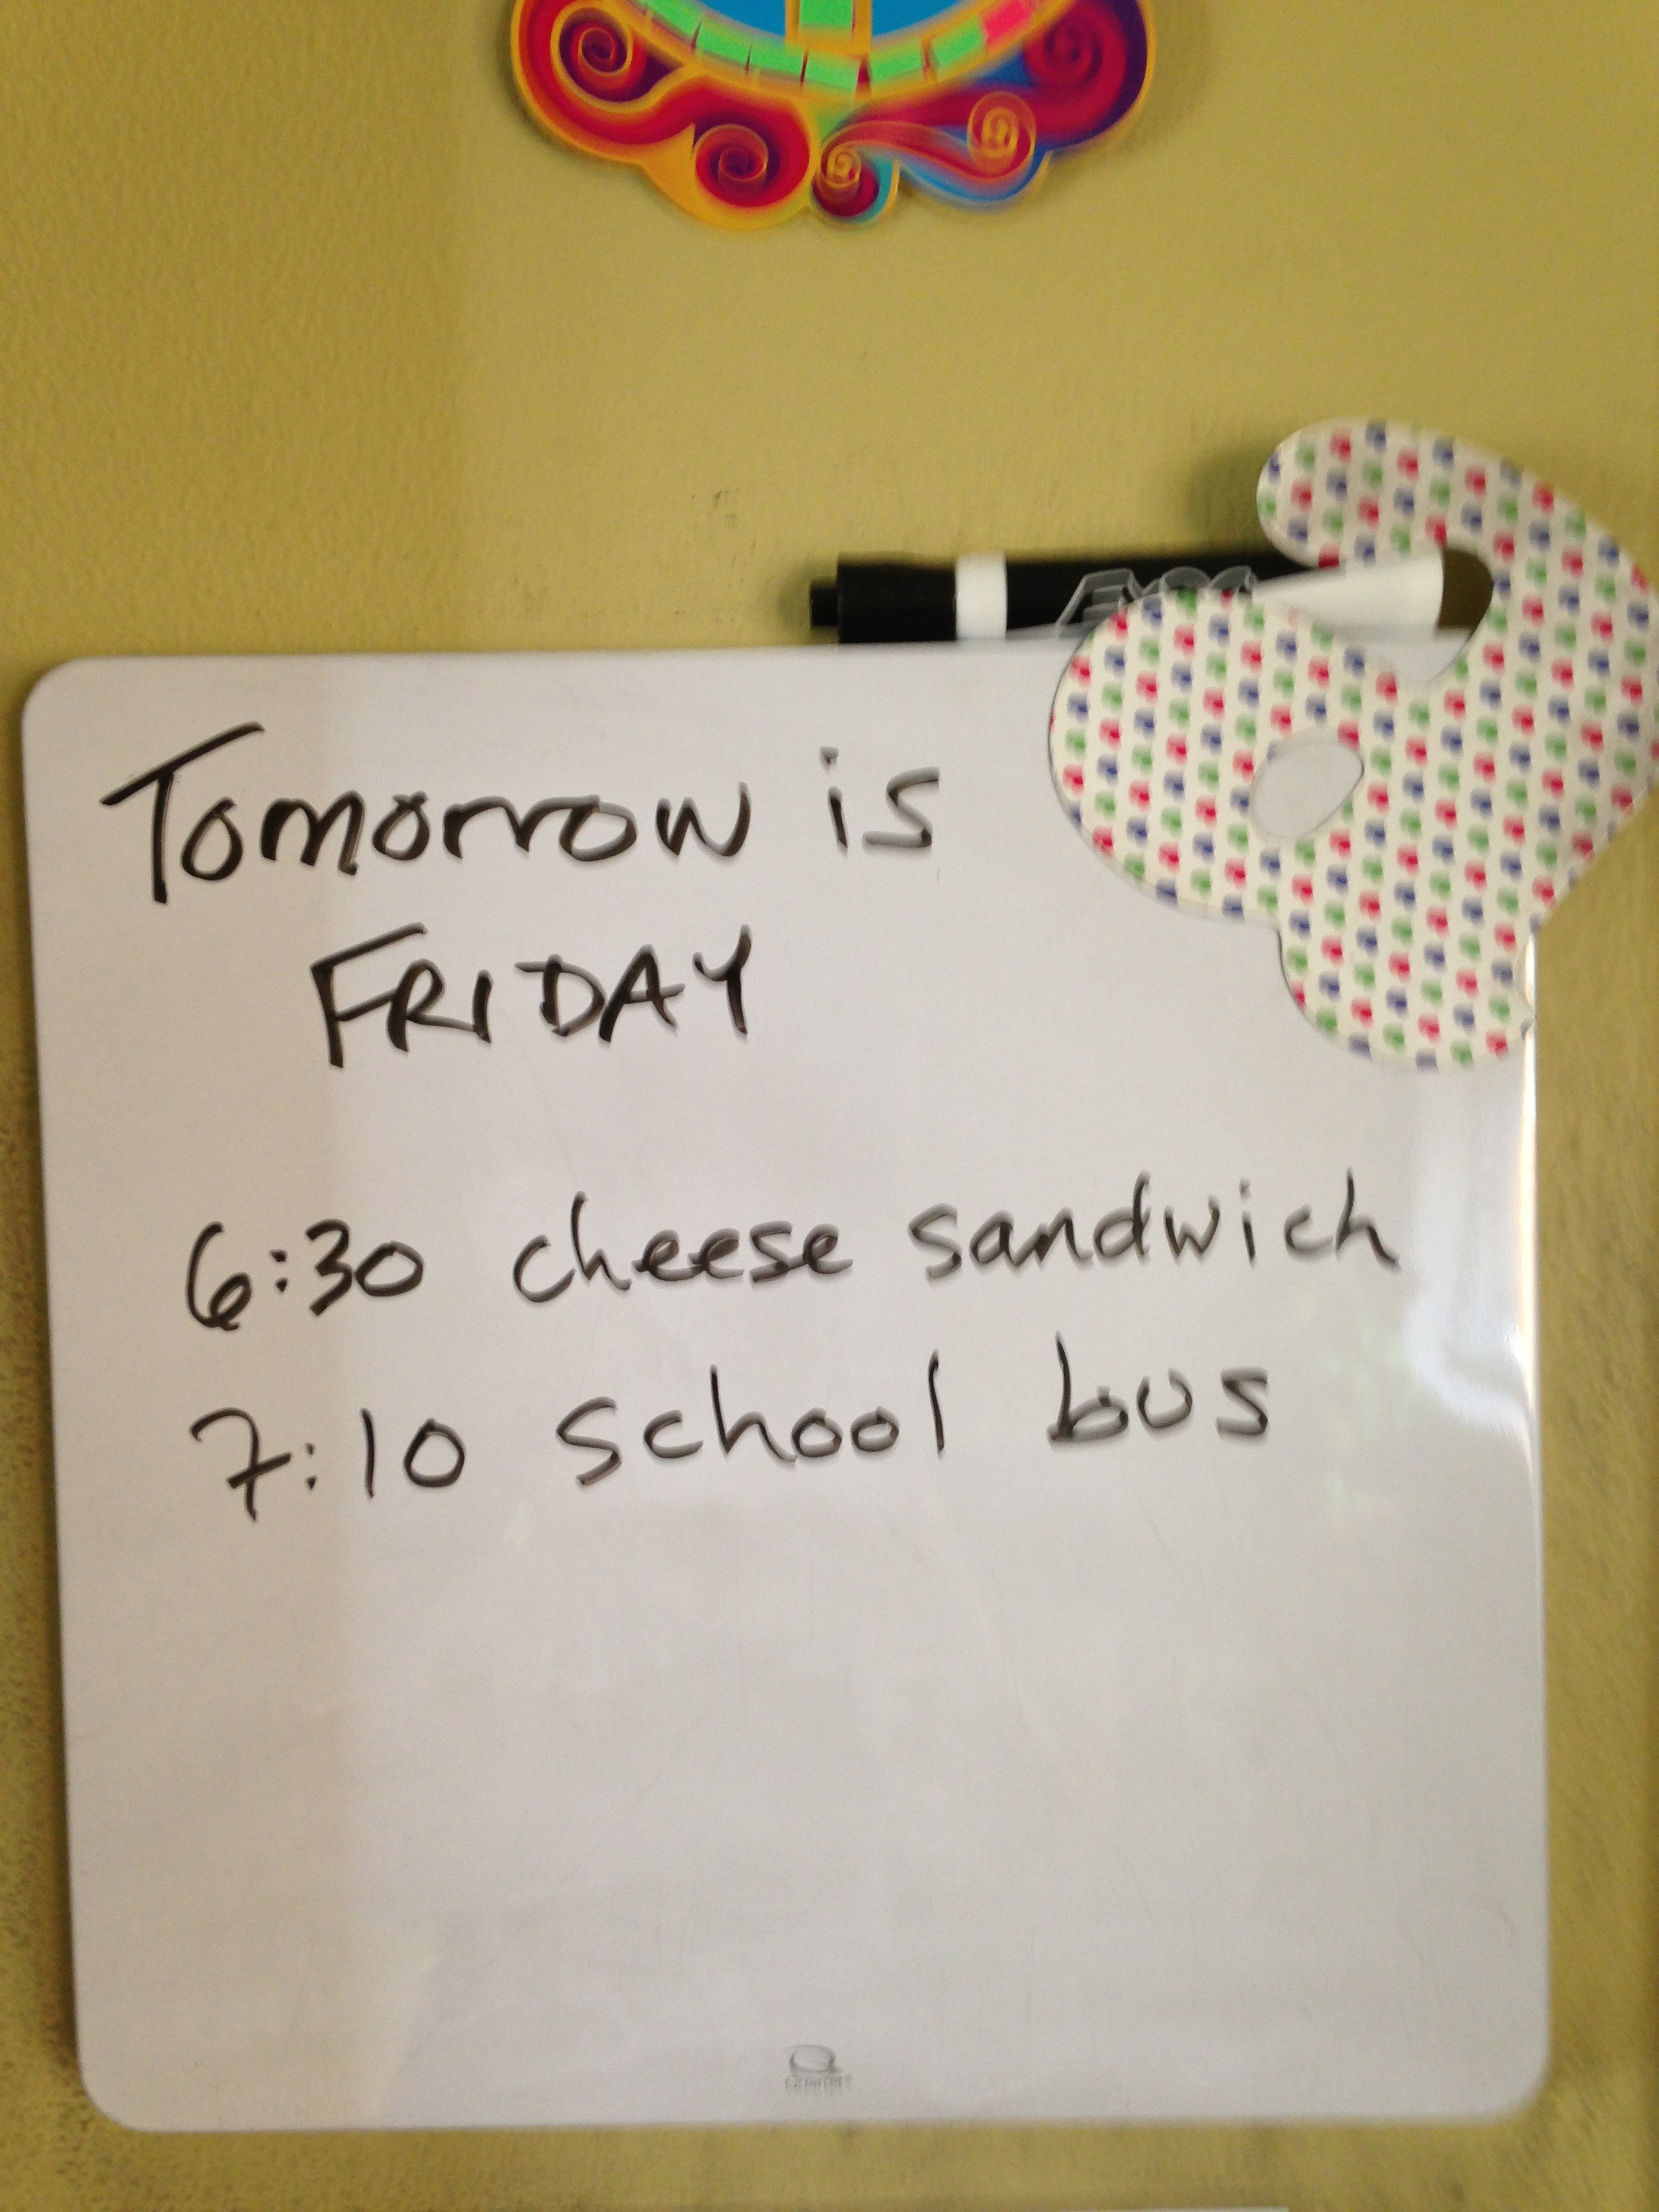 EXPO
Tomorrow is
FRIDAY
6:30 cheese sandwich
7:10 school bus
Quartet